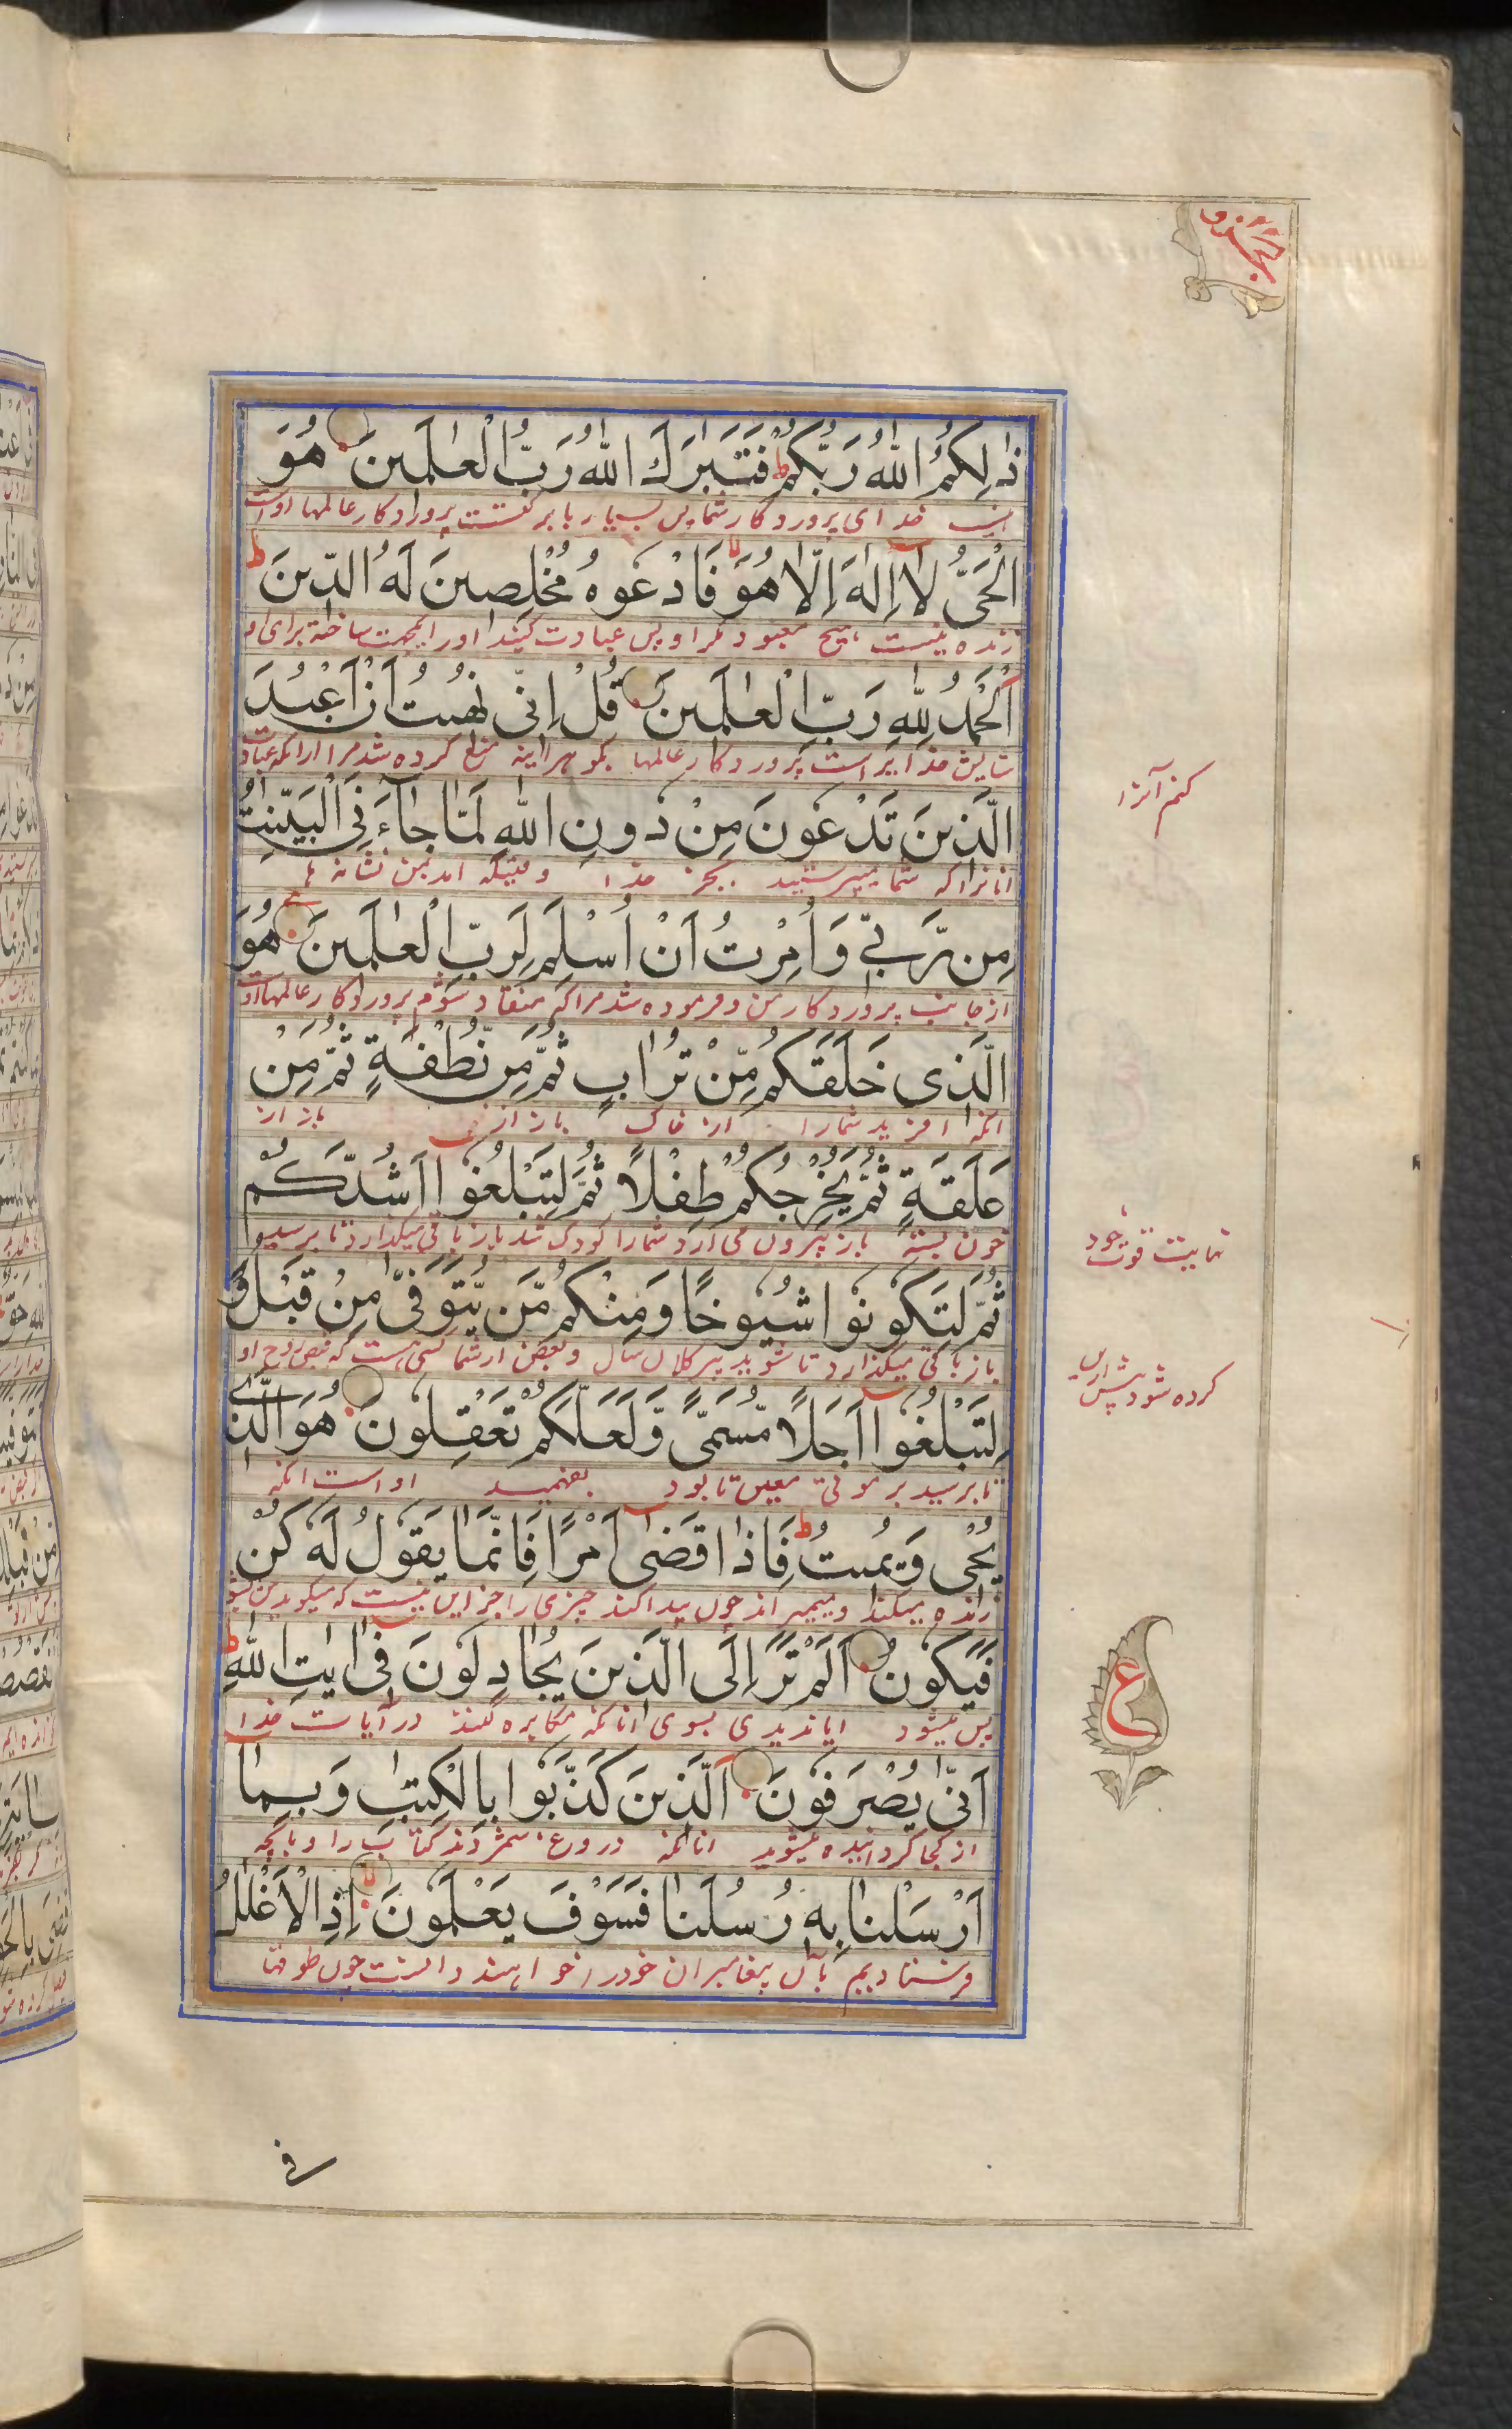 ذٰلِكُمُ اللّٰهُ رَبُّكُمْ ط فَتَبٰرَكَ اللّٰهُ رَبُّ الْعٰلَمِينَ هُوَ
خدای پروردکار شما پس بسیار بابرکتست پروردکار عالمها اوست
الْحَيُّ لَا اِلٰهَ اِلَّا هُوَ فَادْعُوهُ مُخْلِصِينَ لَهُ الدِّينَ ط
زنده نیست هیچ معبود مکر او پس عبادت کنید او را ساخته برای او
اَلْحَمْدُ لِلّٰهِ رَبِّ الْعٰلَمِينَ قُلْ اِنِّي نُهِيتُ اَنْ اَعْبُدَ
ستایش خدایراست پروردکار عالمها بکو هراینه منع کرده شد مرا ازانکه عبادت
کنم آنرا
الَّذِينَ تَدْعُونَ مِنْ دُونِ اللّٰهِ لَمَّا جَاۤءَنِيَ الْبَيِّنٰتُ
انانرا که شما میپرستید بجز خدا وقتیکه امد بمن نشانه ها
مِن رَّبِّي وَاُمِرْتُ اَنْ اُسْلِمَ لِرَبِّ الْعٰلَمِينَ هُوَ
از جانب پروردکار من و فرموده شد مرا که منقاد شوم پروردکار عالمها اوست
الَّذِى خَلَقَكُم مِّنْ تُرَابٍ ثُمَّ مِن نُّطْفَةٍ ثُمَّ مِنْ
انکه افرید شمارا از خاک باز از باز از
عَلَقَةٍ ثُمَّ يُخْرِجُكُمْ طِفْلًا ثُمَّ لِتَبْلُغُوا اَشُدَّكُمْ
خون بسته باز بیرون می ارد شمارا کودک شده باز باقی میکذارد تا برسید
نهایت قوت خود
ثُمَّ لِتَكُونُوا شُيُوخًا وَمِنْكُم مَّن يُّتَوَفّٰى مِنْ قَبْلُ وَ
باز باقی میکذارد تا شوید پیر کلان سال و بعض از شما کسی هست که قبض روح او
کرده شود پیش ازین
لِتَبْلُغُوا اَجَلًا مُّسَمًّى وَّلَعَلَّكُمْ تَعْقِلُونَ هُوَ الَّذِى
تا برسید بر موقت معین تا بود بفهمید او است انکه
يُحْيِ وَيُمِيتُ ط فَاِذَا قَضٰى اَمْرًا فَاِنَّمَا يَقُولُ لَهُ كُنْ
زنده میکند و میمیراند چون پیدا کند چیزی را جز این نیست که میکوید
فَيَكُونُ اَلَمْ تَرَ اِلَى الَّذِينَ يُجَادِلُونَ فِي اٰيٰتِ اللّٰهِ ط
ع
پس میشود ایا ندیدی بسوی انانکه مکابره کنند در آیات خدا
اَنّٰى يُصْرَفُونَ اَلَّذِينَ كَذَّبُوا بِالْكِتٰبِ وَبِمَا
از کجا کردانیده میشوند انانکه دروغ شمردند کتاب را و بانچه
اَرْسَلْنَا بِهِ رُسُلَنَا فَسَوْفَ يَعْلَمُونَ اِذِ الْاَغْلٰلُ
فرستادیم بآن پیغامبران خود را خواهند دانست چون طوقها
فی